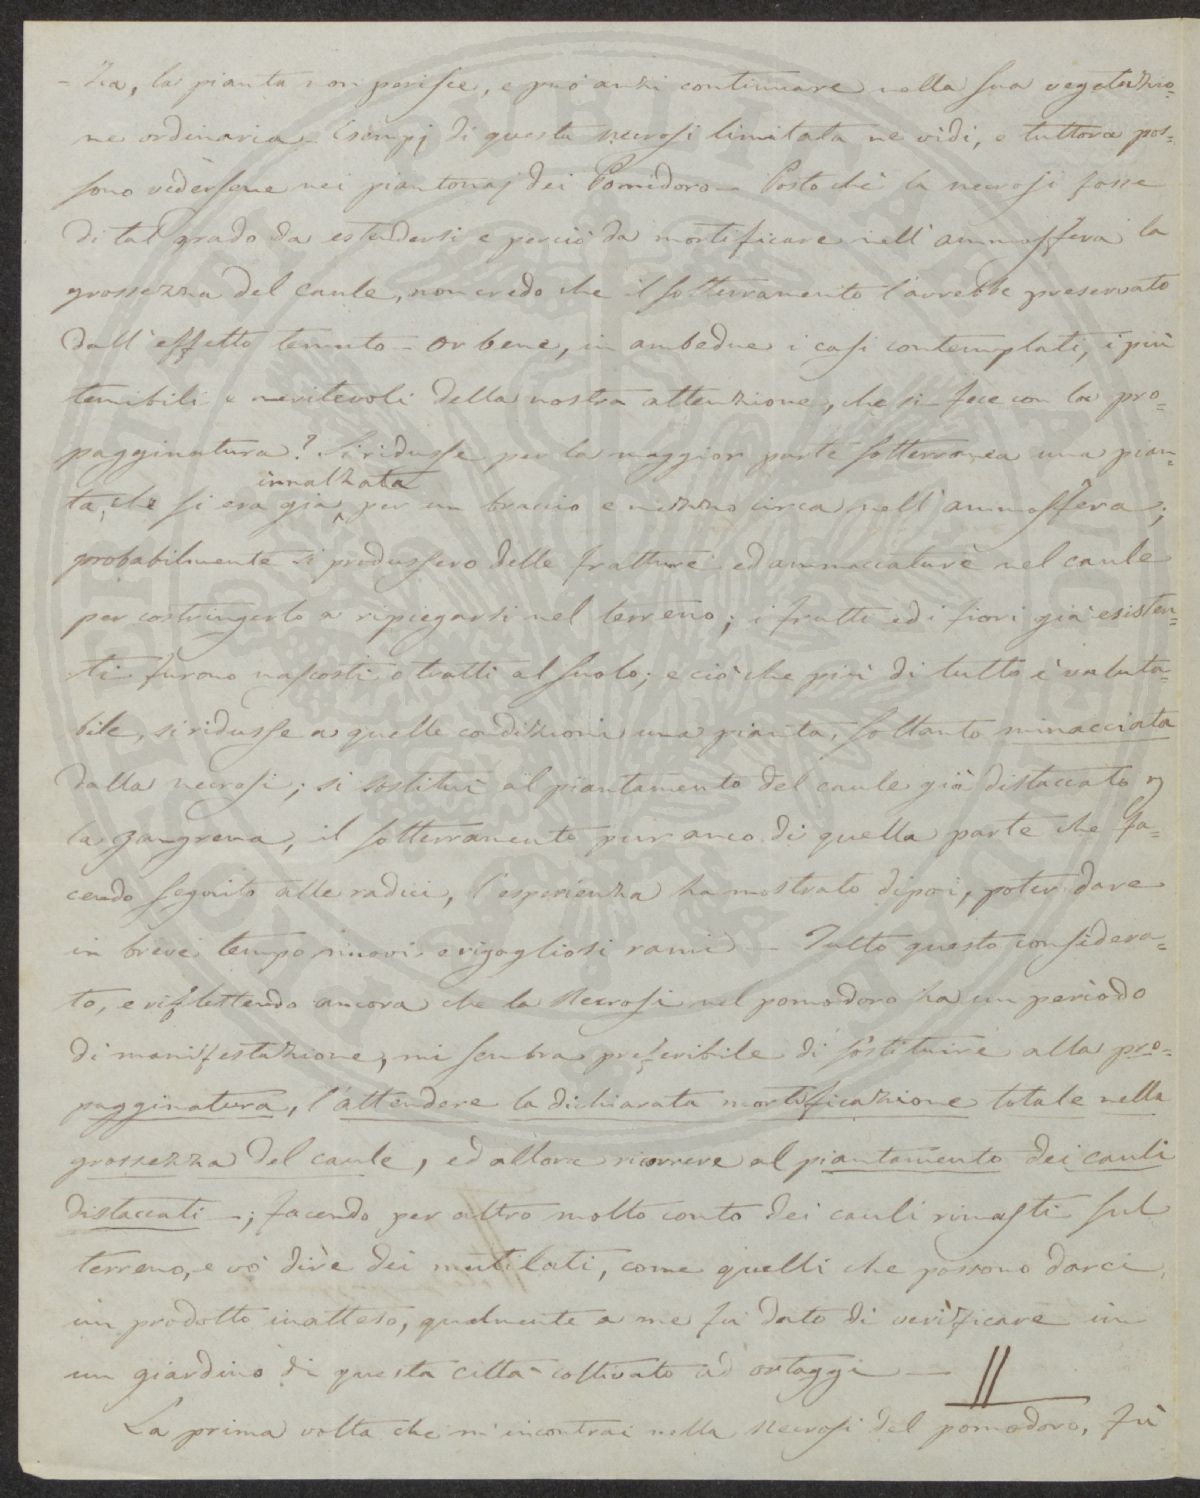 -za, la pianta non perisce, e può anzi continuare nella sua vegetazio=
ne ordinaria. Esempj di questa necrosi limitata ne vidi, e tuttora pos=
sono vedersene nei piantonaj dei Pomidoro — Posto chè la necrosi fosse
di tal grado da estendersi e perciò da mortificare nell'ammosfera la
grossezza del caule, non credo che il sotterramento l'avrebbe preservato
dall'effetto temuto — Or bene, in ambedue i casi contemplati, i più
temibili e meritevoli della nostra attenzione, che si fece con la pro=
pagginatura? Si ridusse per la maggior parte sotterranea una pian=
innalzata
ta, che si era già per un braccio e mezzo circa nell'ammosfera;
probabilmente si produssero delle fratture ed ammaccature nel caule
per costringerlo a ripiegarsi nel terreno; i frutti ed i fiori già esisten=
ti furono nascosti o tratti al suolo; e ciò che più di tutto è valuta=
bile, si ridusse a quelle condizioni una pianta, soltanto minacciata
dalla necrosi; si sostituì al piantamento del caule già distaccato p
la gangrena, il sotterramento pur anco di quella parte che fa=
cendo seguito alle radici, l'esperienza ha mostrato dipoi, poter dare
in breve tempo nuovi e rigogliosi rami — Tutto questo considera=
to, e riflettendo ancora che la Necrosi nel pomodoro ha un periodo
di manifestazione, mi sembra preferibile di sostituire alla pro=
pagginatura, l'attendere la dichiarata mortificazione totale nella
grossezza del caule, ed allora ricorrere al piantamento dei cauli
distaccati —; facendo per altro molto conto dei cauli rimasti sul
terreno, e vò dire dei mutilati, come quelli che possono darci
un prodotto inatteso, qualmente a me fu dato di verificare in
un giardino di questa città coltivato ad ortaggi —
La prima volta che m'incontrai nella Necrosi del pomodoro, fù